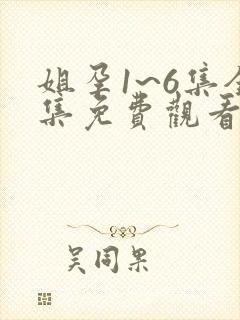 姐孕1~6集全
集免費觀看
吴同果